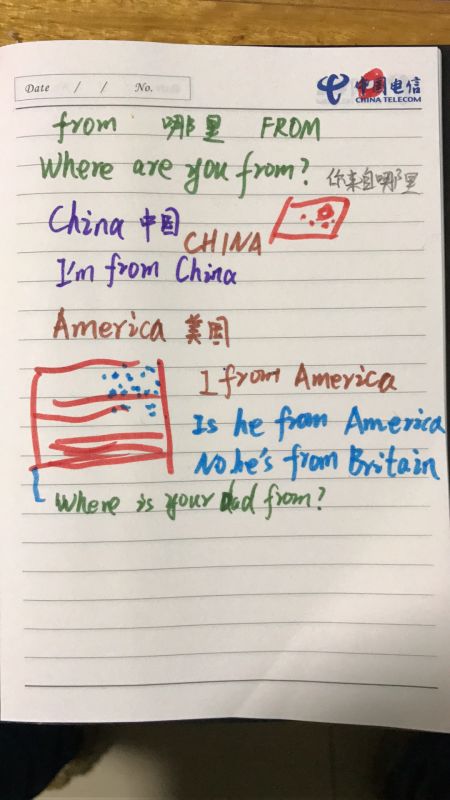 Date / / No.
中国电信
CHINA TELECOM
from 哪里 FROM
Where are you from? 你来自哪里
China 中国 CHINA
I'm from China
America 美国
I from America
Is he from America
No.he's from Britain
Where is your dad from?